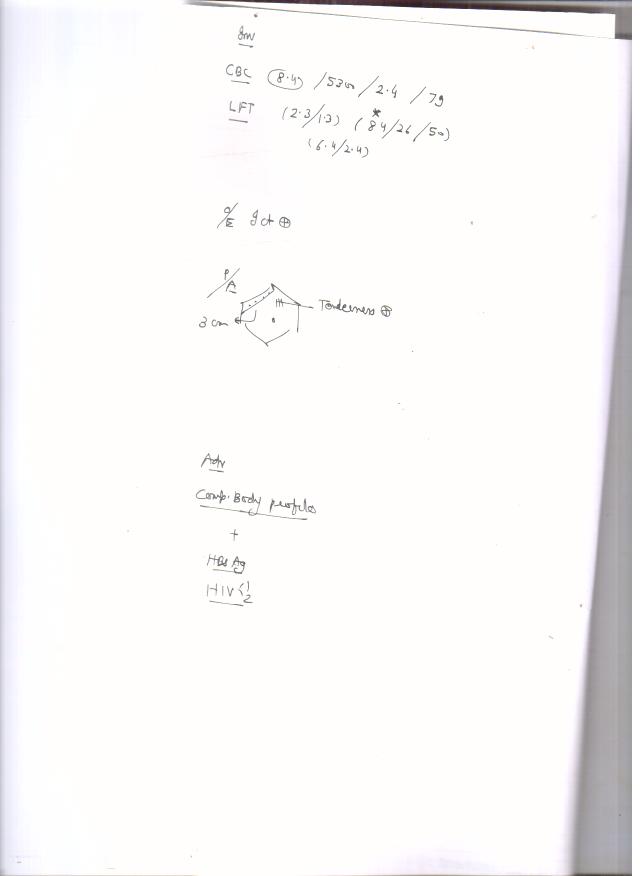 Inv
CBC (8.4) / 5300 / 2.4 / 79
LFT (2.3/1.3) (84/26/50)
(6.4/2.4)
O/E Jct ⊕
P/A
Tenderness ⊕
3 cm
Adv
Comp. Body profiles
+
HBsAg
HIV 1
2